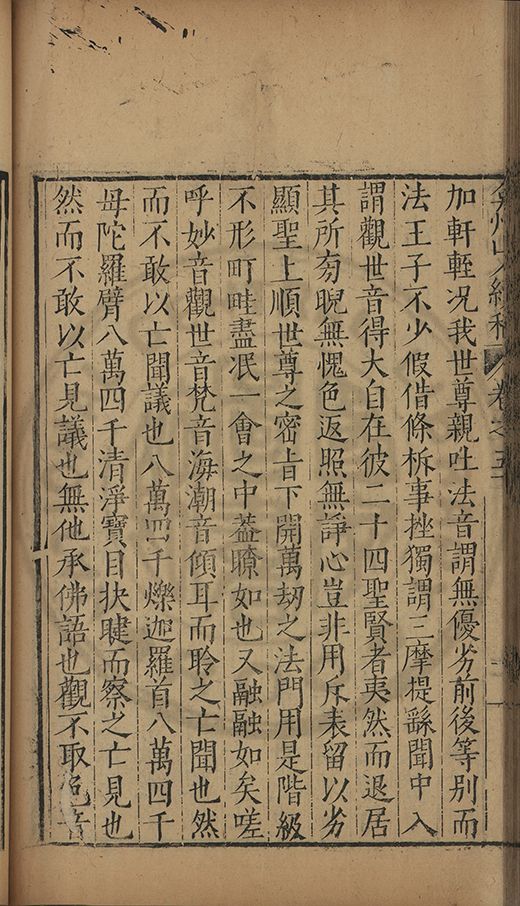 弇州山人續稿 卷之五
加軒輊况我世尊親吐法音謂無優劣前後等別而
法王子不少假借條柝事挫獨謂三摩提繇聞中入
謂觀世音得大自在彼二十四聖賢者夷然而退居
其所旁睨無愧色返照無諍心豈非用斥表留以劣
顯聖上順世尊之密旨下開萬劫之法門用是階級
不形町畦盡泯一會之中葢瞭如也又融融如矣嗟
呼妙音觀世音梵音海潮音傾耳而聆之亡聞也然
而不敢以亡聞議也八萬四千爍迦羅首八萬四千
母陀羅臂八萬四千清淨寶目抉睫而察之亡見也
然而不敢以亡見議也無他承佛語也觀不取色音